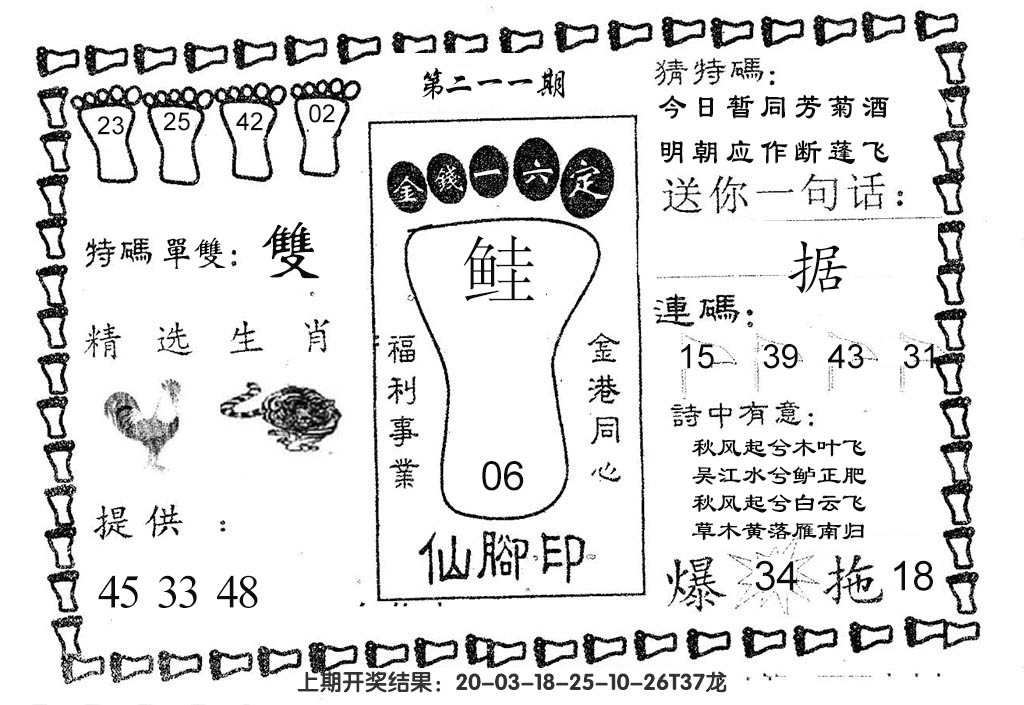 第二一一期
23 25 42 02
特碼單雙：雙
精选生肖
提供：
45 33 48
金錢一六定
鮭
福利事業
金港同心
06
仙腳印
猜特碼：
今日暂同芳菊酒
明朝应作断蓬飞
送你一句话：
据
連碼：
15 39 43 31
詩中有意：
秋风起兮木叶飞
吴江水兮鲈正肥
秋风起兮白云飞
草木黄落雁南归
爆 34 拖 18
上期开奖结果：20-03-18-25-10-26T37龙